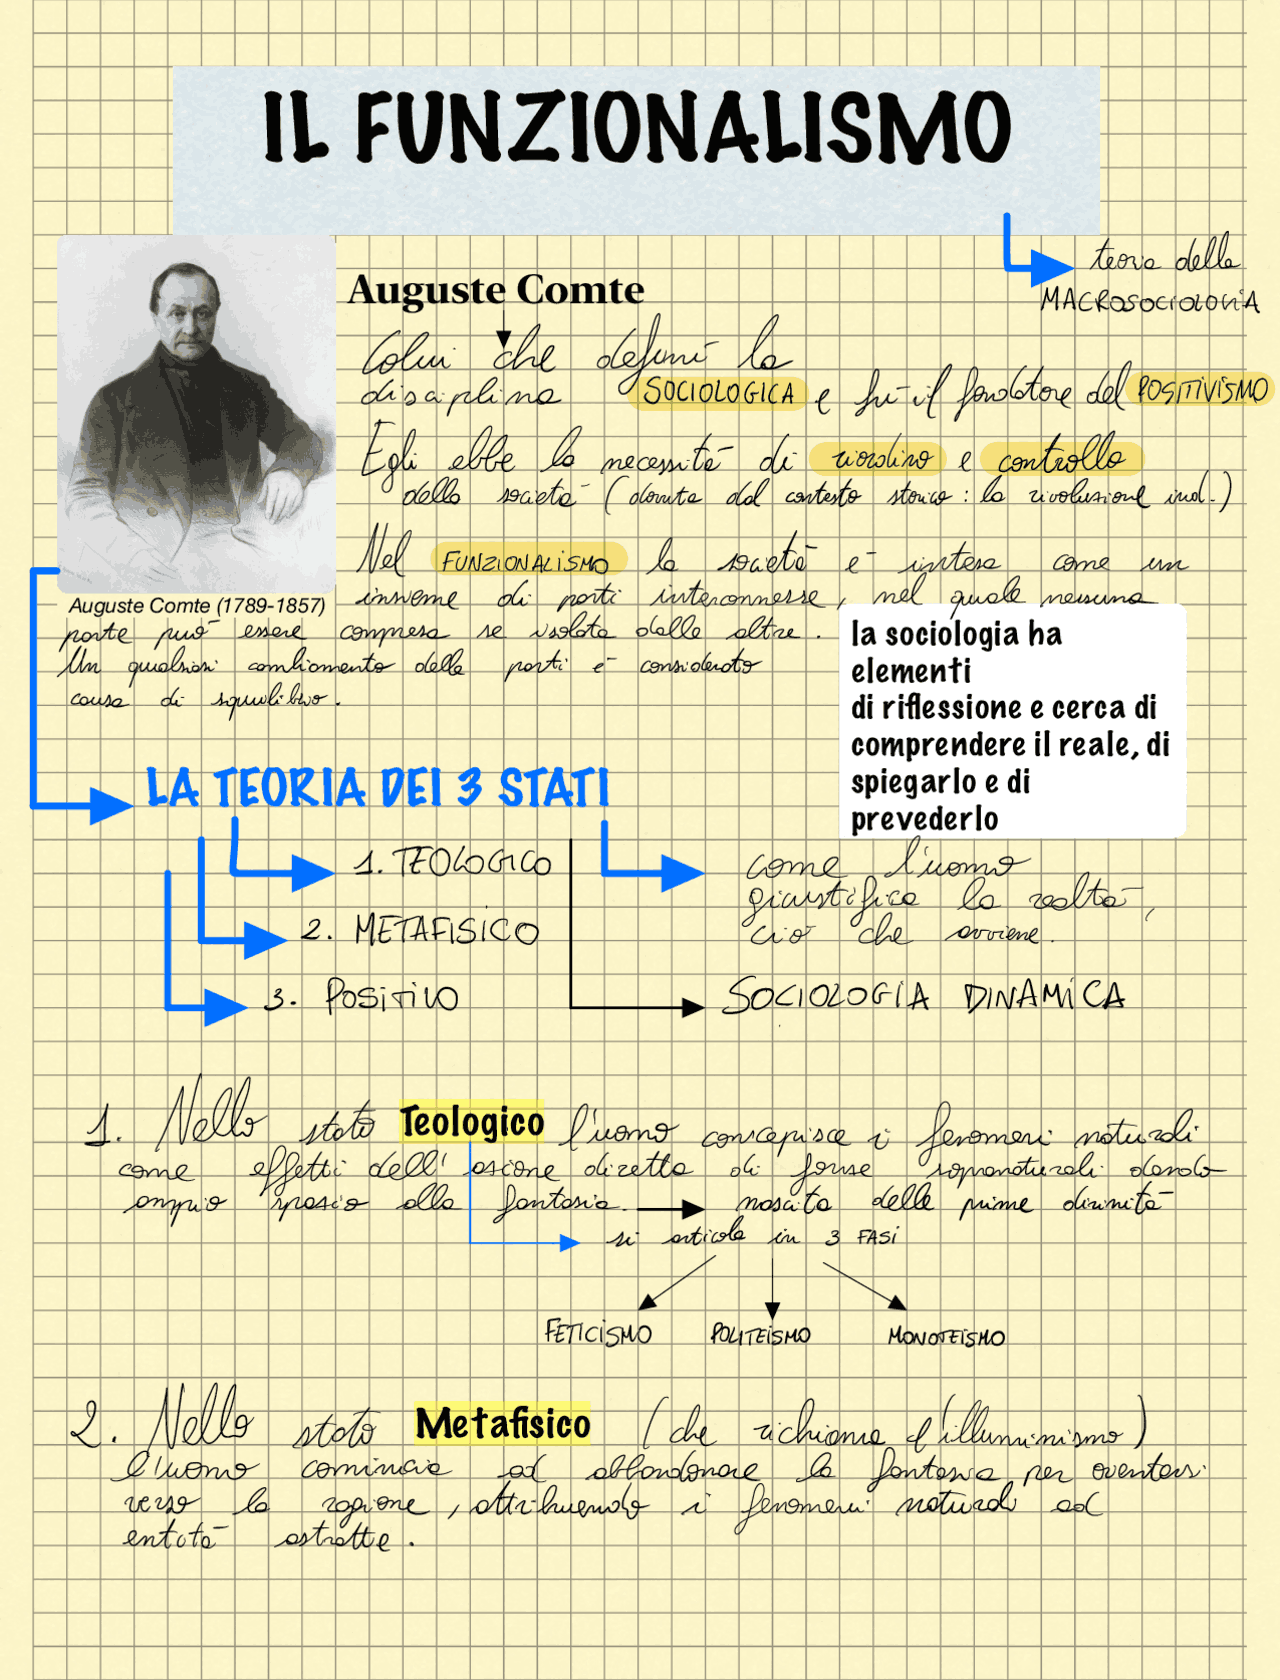 IL FUNZIONALISMO
teoria della
MACROSOCIOLOGIA
Auguste Comte
Colui che definì la
disciplina SOCIOLOGICA e fù il fondatore del POSITIVISMO
Egli ebbe la necessità di riordino e controllo
della società (dovuta dal contesto storico: la rivoluzione ind.)
Nel FUNZIONALISMO la società è intesa come un
insieme di parti interconnesse, nel quale nessuna
Auguste Comte (1789-1857)
parte può essere compresa se isolata dalle altre.
Un qualsiasi cambiamento delle parti è considerato
causa di squilibrio.
la sociologia ha
elementi
di riflessione e cerca di
comprendere il reale, di
spiegarlo e di
prevederlo
LA TEORIA DEI 3 STATI
1. TEOLOGICO
2. METAFISICO
3. POSITIVO
come l'uomo
giustifica la realtà,
ciò che avviene.
SOCIOLOGIA DINAMICA
1. Nello stato Teologico l'uomo concepisce i fenomeni naturali
come effetti dell'azione diretta di forze sopranaturali dando
ampio spazio alla fantasia. nascita delle prime divinità
si articola in 3 FASI
FETICISMO POLITEISMO MONOTEISMO
2. Nello stato Metafisico (che richiama l'illuminismo)
l'uomo comincia ad abbandonare la fantasia per orientarsi
verso la ragione, attribuendo i fenomeni naturali ad
entità astratte.